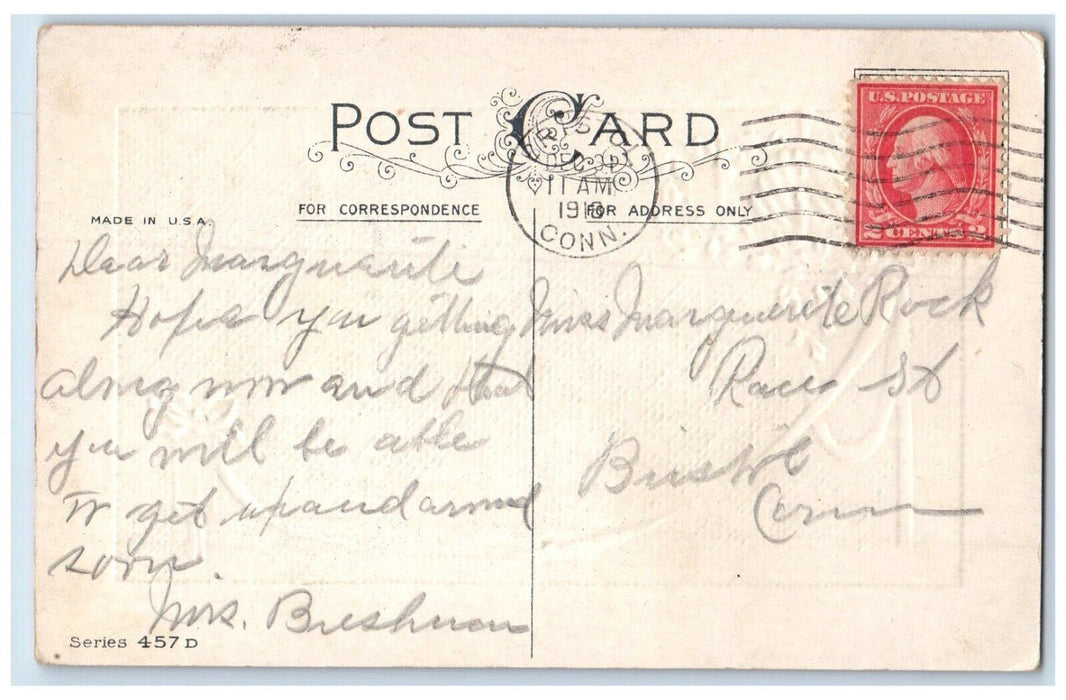 POST CARD
U.S. POSTAGE
2 CENTS 2
DEC
11 AM
191
CONN.
FOR CORRESPONDENCE
FOR ADDRESS ONLY
MADE IN U.S.A.
Dear Marguerite
Hope you getting
along now and that
you will be able
to get up and around
soon.
Mrs.
Miss Marguerite Rock
Race St
Bristol
Conn
Series 457 D